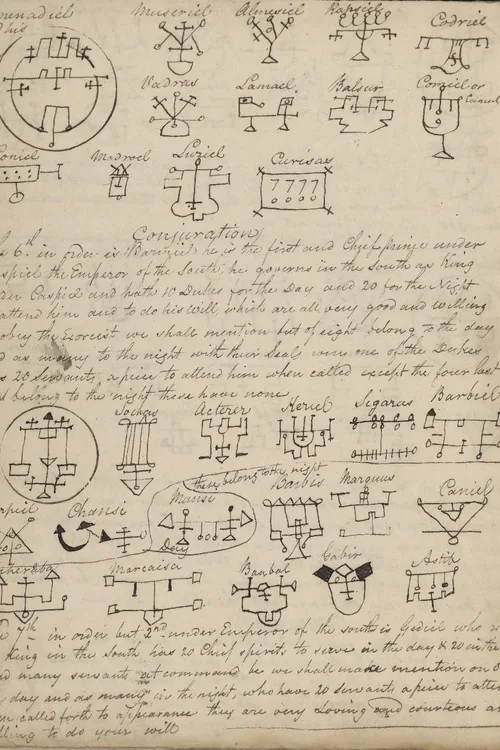 Museriel Almesiel Rapsiel Codriel
menadiel
his
Vadras Lamael Balsur Comiel or
Camiel
oniel Medroel Luziel Curisas
7777
Conjuration
6th in order is he is the first and Chief prince under
spiel the Emperor of the South, he governs in the South as King
der Caspiel and hath 10 Dukes for the Day and 20 for the Night
attend him and to do his will which are all very good and willing
obey the Exorcist we shall mention but of eight belong to the day
d as many to the night with their Seals every one of the Dukes
s 20 Servants, a piece to attend him when called except the four last
t belong to the night these have none
Sochas Acterer Keriel Sigaras Barbiel
these belong to the night
Barbis Marquus Caniel
rpiel Chansi Mansi
Day
Marcaisa Baabal Gabir Astib
7th in order but 2nd under Emperor of the south is Gediel who
king in the South has 20 Chief spirits to serve in the day & 20 in the
d many servants at command be we shall make mention on
day and as many in the night, who have 20 servants a piece to atte
en called forth to appearance they are very Loving and courteous a
lling to do your will